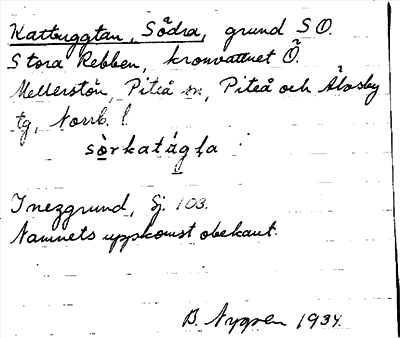 Kattuggtan, Södra, grund SO.
Stora Rebben, kronvattnet Ö.
Mellerstön, Piteå sn, Piteå och Älvsby
tg, Norrb. l.
sòrkatágla
Inezgrund, Sj. 103.
Namnets uppkomst obekant.
B. Nygren 1934.